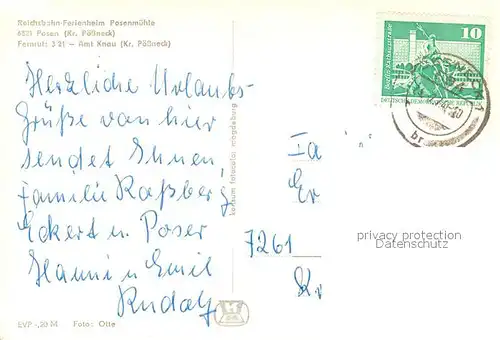 Reichsbahn-Ferienheim Posenmühle
6821 Posen (Kr. Pößneck)
Fernruf: 3 21 — Amt Knau (Kr. Pößneck)
Herzliche Urlaubs-
grüße von hier
sendet Ihnen,
Familie Raßberg,
Eckert u. Poser
Hanni u Emil
Rudolf
EVP -,20 M Foto: Otte
konsum fotocolor magdeburg
10
DEUTSCHE DEMOKRATISCHE REPUBLIK
br
Fa
Er
7261
Kr
privacy protection
Datenschutz